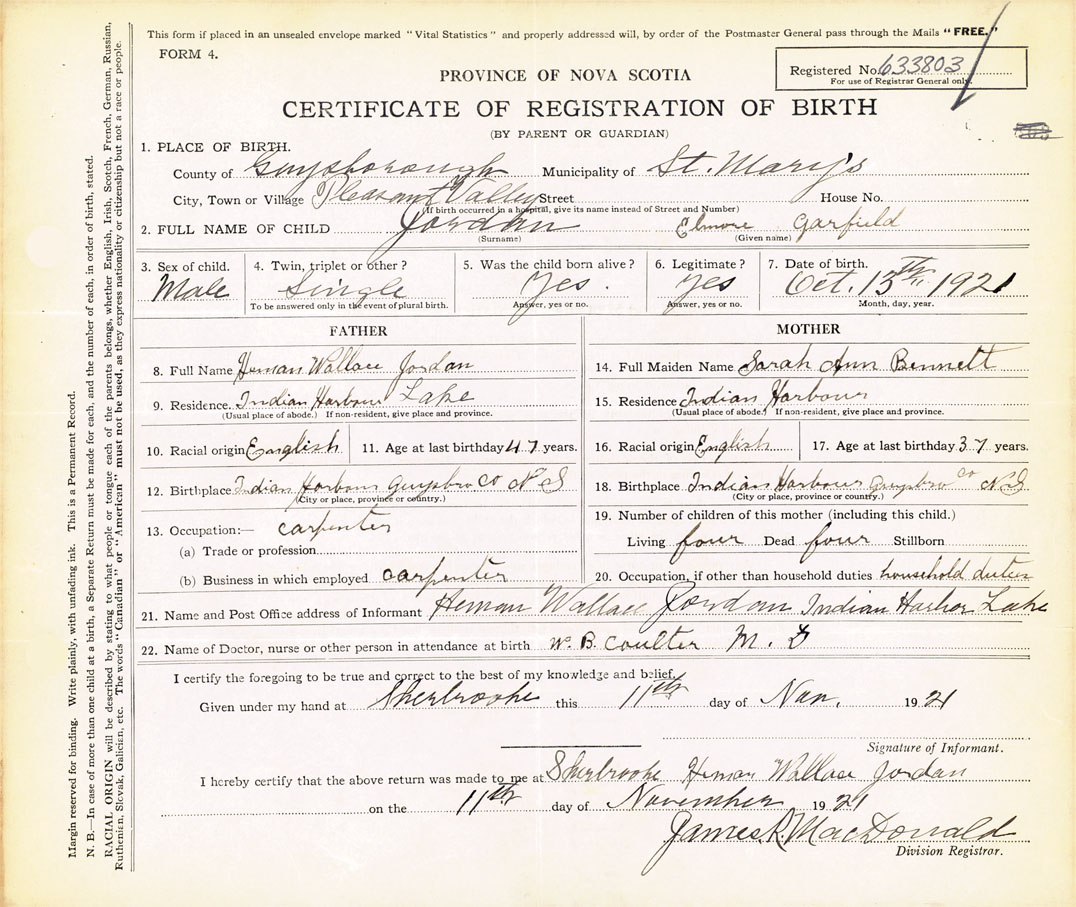 This form if placed in an unsealed envelope marked "Vital Statistics" and properly addressed will, by order of the Postmaster General pass through the Mails "FREE."
FORM 4.
Registered No. 633803
For use of Registrar General only.
PROVINCE OF NOVA SCOTIA
CERTIFICATE OF REGISTRATION OF BIRTH
(BY PARENT OR GUARDIAN)
1. PLACE OF BIRTH.
County of Guysborough Municipality of St. Mary's
City, Town or Village Pleasant Valley Street House No.
(If birth occurred in a hospital, give its name instead of Street and Number)
2. FULL NAME OF CHILD Jordan Elmore Garfield
(Surname) (Given name)
3. Sex of child. 4. Twin, triplet or other? 5. Was the child born alive? 6. Legitimate? 7. Date of birth.
Male Single Yes. Yes Oct. 13th 1921
To be answered only in the event of plural birth. Answer, yes or no. Answer, yes or no. Month, day, year.
FATHER
8. Full Name Heman Wallace Jordan
9. Residence. Indian Harbour Lake
(Usual place of abode.) If non-resident, give place and province.
10. Racial origin English 11. Age at last birthday 47 years.
12. Birthplace Indian Harbour Guysbro Co N S
(City or place, province or country.)
13. Occupation:— carpenter
(a) Trade or profession
(b) Business in which employed carpenter
MOTHER
14. Full Maiden Name Sarah Ann Bennett
15. Residence Indian Harbour
(Usual place of abode.) If non-resident, give place and province.
16. Racial origin English 17. Age at last birthday 37 years.
18. Birthplace Indian Harbour Guysbro Co N.S
(City or place, province or country.)
19. Number of children of this mother (including this child.)
Living four Dead four Stillborn
20. Occupation, if other than household duties household duties
21. Name and Post Office address of Informant Heman Wallace Jordan Indian Harbor Lake
22. Name of Doctor, nurse or other person in attendance at birth W. B. Coulter M. D
I certify the foregoing to be true and correct to the best of my knowledge and belief.
Given under my hand at Sherbrooke this 11th day of Nov. 1921
Signature of Informant.
I hereby certify that the above return was made to me at Sherbrooke Heman Wallace Jordan
on the 11th day of November 1921
James R. MacDonald
Division Registrar.
Margin reserved for binding. Write plainly, with unfading ink. This is a Permanent Record.
N. B.—In case of more than one child at a birth, a Separate Return must be made for each, and the number of each, in order of birth, stated.
RACIAL ORIGIN will be described by stating to what people or tongue each of the parents belongs, whether English, Irish, Scotch, French, German, Russian,
Ruthenian, Slovak, Galician, etc. The words "Canadian" or "American" must not be used, as they express nationality or citizenship but not a race or people.